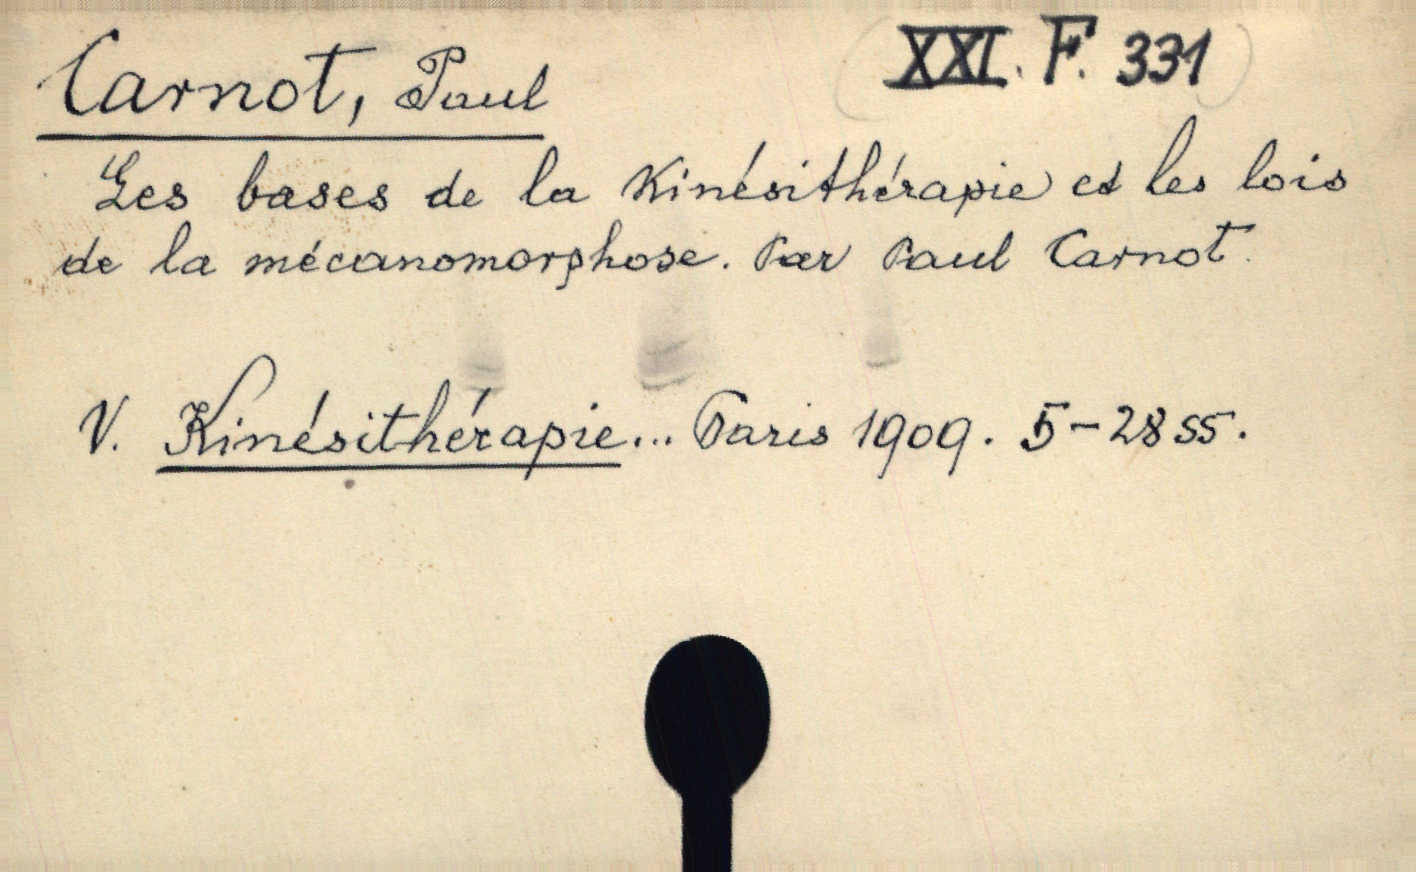 Carnot, Paul
XXI. F. 331
Les bases de la Kinésithérapie et les lois
de la mécanomorphose. Par Paul Carnot.
V. Kinésithérapie... Paris 1909. 5-28 ss.